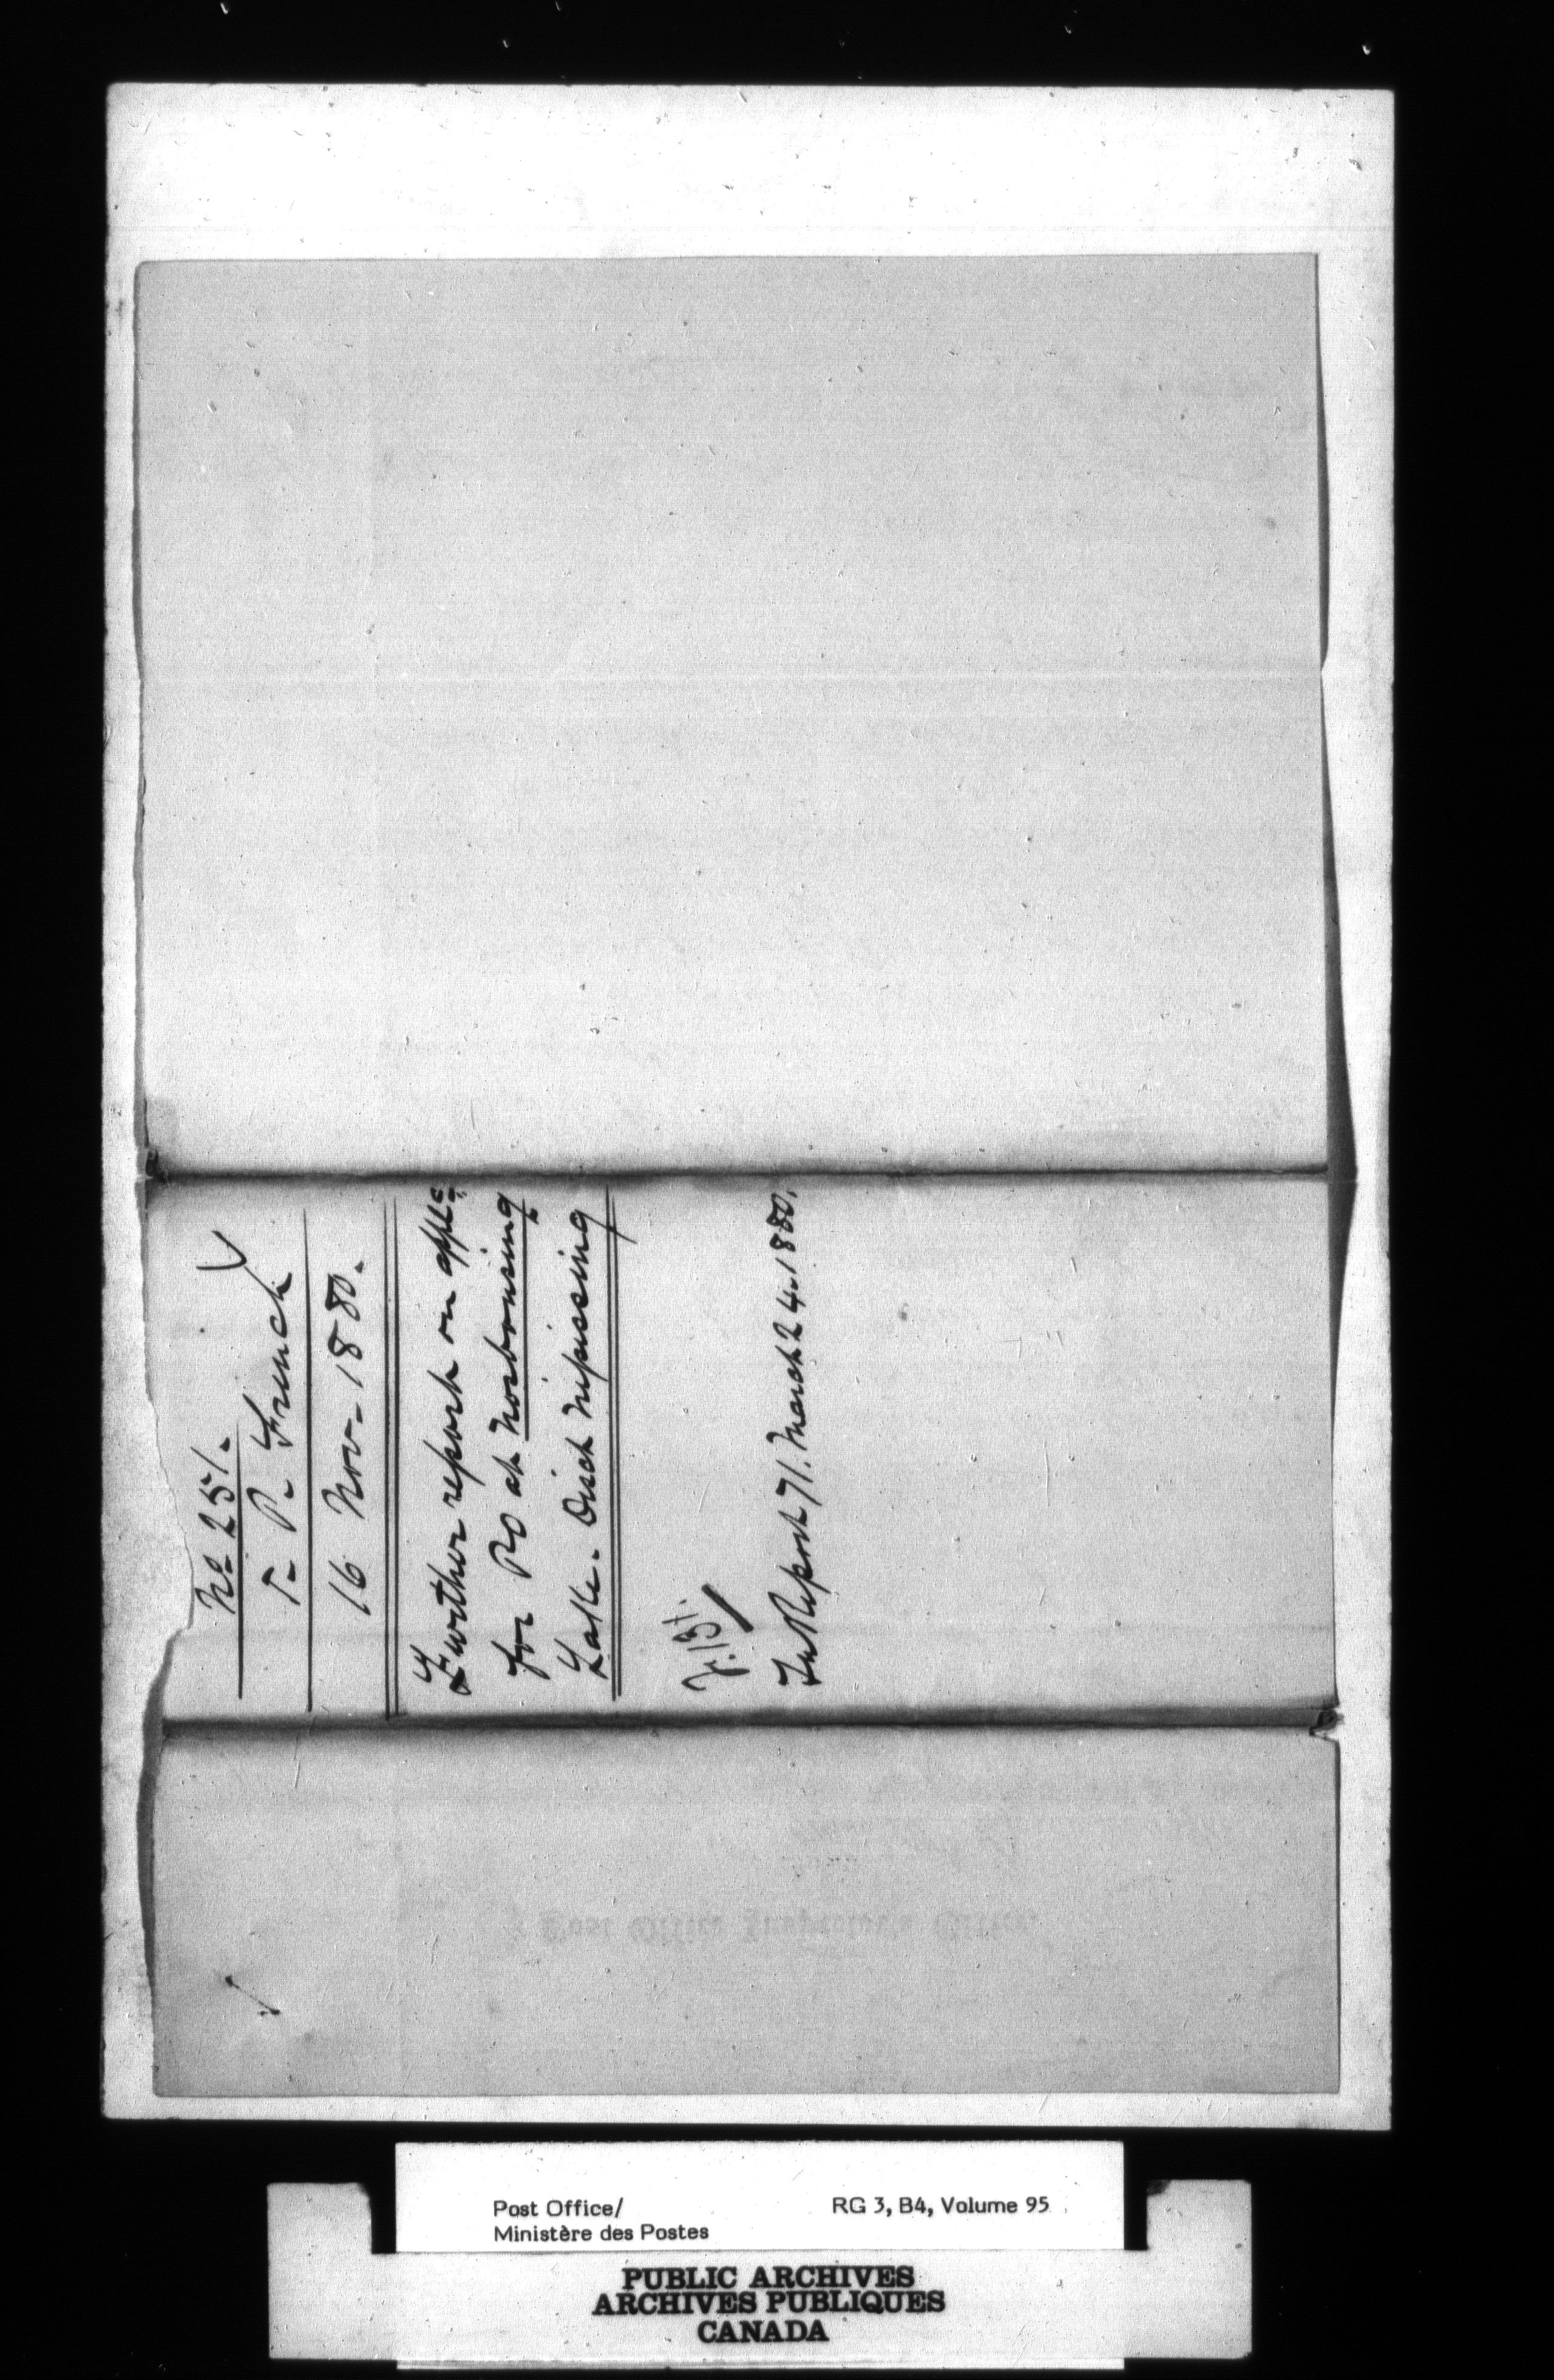 No. 251.
T. P. French
16 Nov. 1880.
Further report on applc
for PO at Nosbonsing
Lake. Dist Nipissing
In Report 71. March 24. 1880.
Post Office Inspector's Office.
Post Office/
Ministère des Postes
RG 3, B4, Volume 95
PUBLIC ARCHIVES
ARCHIVES PUBLIQUES
CANADA